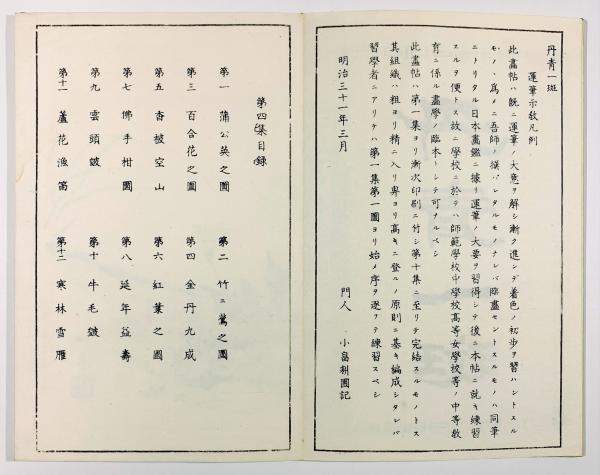 丹青一斑
運筆示敎凡例
此畫帖ハ既ニ運筆ノ大意ヲ解シ漸ク進ンデ着色ノ初步ヲ習ハントスル
モノヽ爲メニ吾師ノ撰バレタルモノナレバ臨畫セントスルモノハ同筆
ニトリタル日本畫鑑ニ據リ運筆ノ大要ヲ習得シテ後ニ本帖ニ就キ練習
スルヲ便トス故ニ學校ニ於テハ師範學校中學校高等女學校等ノ中等敎
育ニ係ル畫學ノ臨本トシテ可ナルベシ
此畫帖ハ第一集ヨリ漸次印刷ニ付シ第十集ニ至リテ完結スルモノトス
其組織ハ粗ヨリ精ニ入リ卑ヨリ高キニ登ルノ原則ニ基キ編成シタレバ
習學者ニアリテハ第一集第一圖ヨリ始メ序ヲ逐ヲテ練習スベシ
明治三十一年三月
門人 小畠耕圃記
第四集目錄
第一 蒲公英之圖 第二 竹ニ鶯之圖
第三 百合花之圖 第四 金丹九成
第五 杳椏空山 第六 紅葉之圖
第七 佛手柑圖 第八 延年益壽
第九 雲頭皴 第十 牛毛皴
第十一 蘆花漁笛 第十二 寒林雪雁